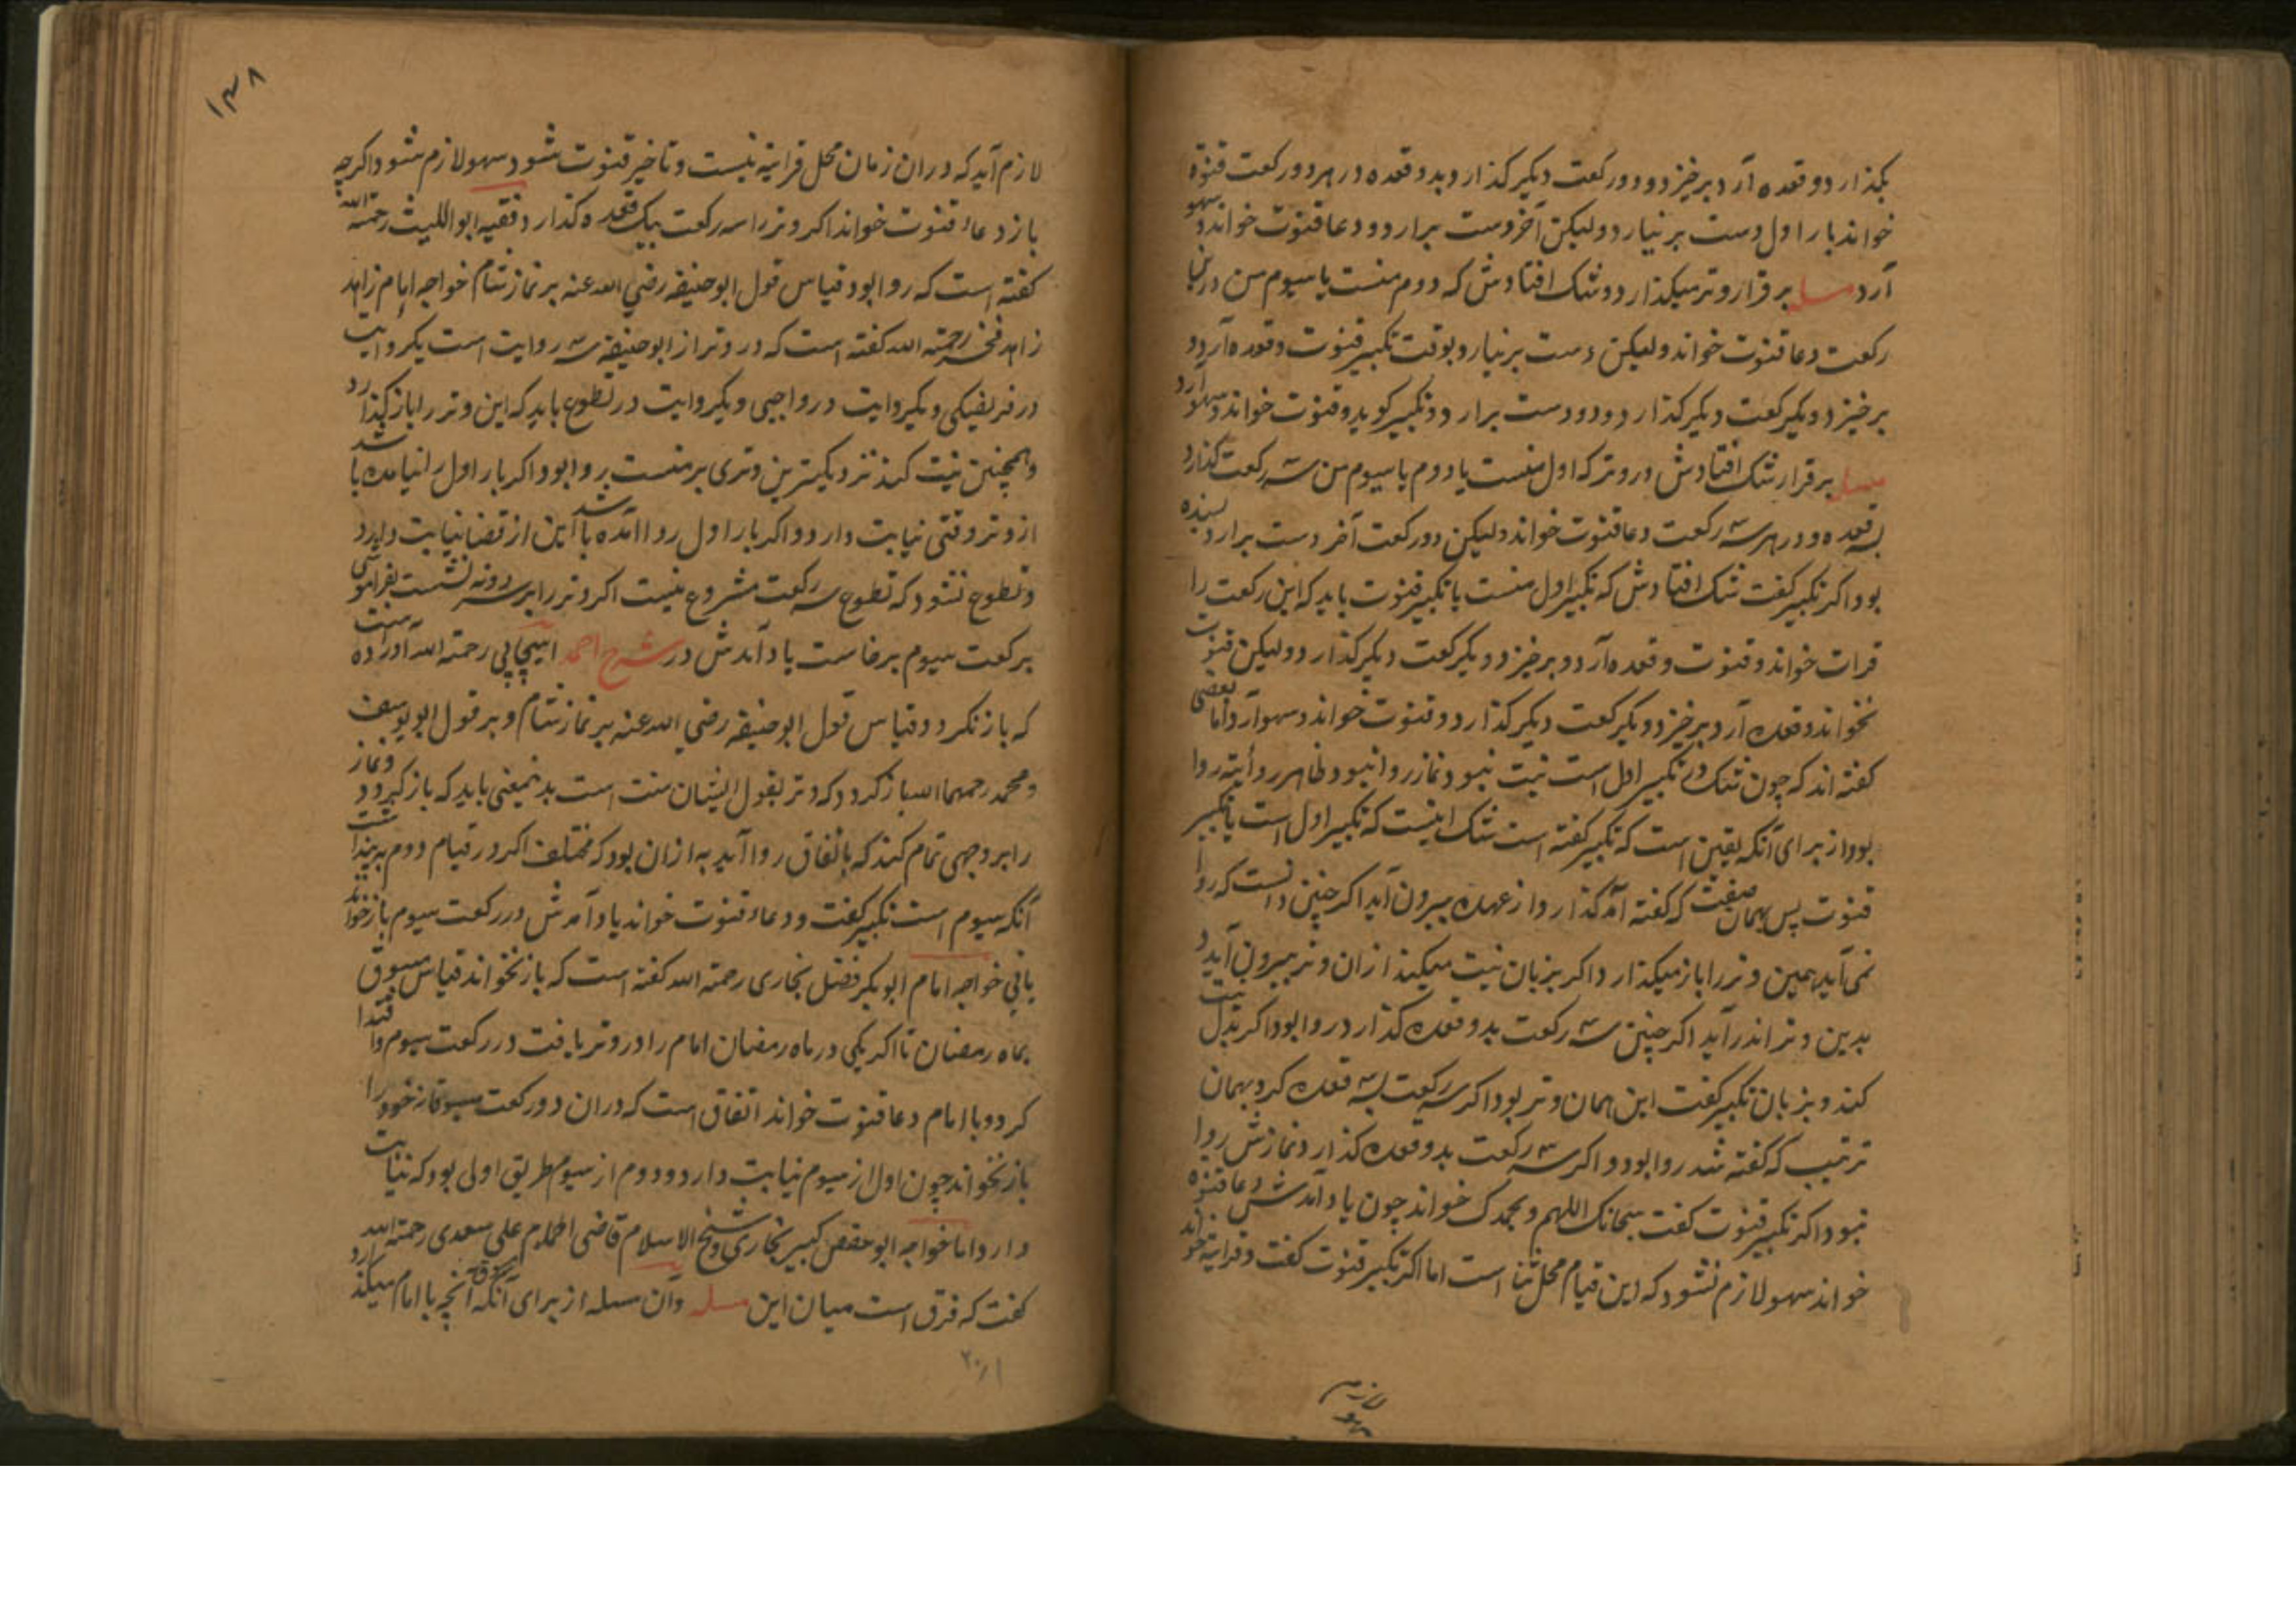 بکذارد و قعده آرد برخیزد و دو رکعت دیکر کذارد و بدو قعده در هر دو رکعت قنوة
خواند بار اول دست بر نیارد ولیکن آخر دست برارد و دعا قنوت خواند و سهو
آرد مسله برقرار وتر میکذارد و شک افتادش که دوم منست یا سیوم من درین
رکعت دعا قنوت خواند ولیکن دست بر نیارد بوقت تکبیر قنوت و قعده آرد و
برخیزد و یکرکعت دیکر کذارد و دو دست برارد و تکبیر کوید و قنوت خواند و سهو آرد
مسله برقرار شک افتادش در وتر که اول منست یا دوم یا سیوم من سه رکعت کذارد
بسه قعده و در هر سه رکعت دعا قنوت خواند ولیکن در رکعت آخر دست برارد بسنده
بود اکر تکبیر کفت شک افتادش که تکبیر اول منست یا تکبیر قنوت باید که این رکعت را
قرات خواند و قنوت و قعده آرد و برخیزد و یکرکعت دیکر کذارد ولیکن قنوت
نخواند و قعده آرد برخیزد و یکرکعت دیکر کذارد و قنوت خواند و سهو آرد و اما بعضی
کفته اند که چون شک در تکبیر اول است نیت نبود و نماز روا نبود و ظاهر روایته روا
بود از برای آنکه یقین است که تکبیر کفته است شک اینست که تکبیر اول است یا تکبیر
قنوت پس بهمان صفت که کفته آمد کذارد از عهده بیرون آید اکر چنین دانست که روا
نمی آید همین وتر را باز میکذارد اکر بزبان نیت میکند ازان وتر بیرون آید و
بدین وتر اندر آید اکر چنین سه رکعت بدو قعده کذارد روا بود اکر بدل نیت
کند و بزبان تکبیر کفت این همان وتر بود اکر سه رکعت بسه قعده کرد بهمان
ترتیب که کفته شد روا بود و اکر سه رکعت بدو قعده کذارد نمازش روا
نبود اکر تکبیر قنوت کفت سبحانک اللهم و بحمدک خواند چون یاد آمدش دعا قنوة
خواند سهو لازم نشود که این قیام محل ثنا است اما اکر تکبیر قنوت کفت و قرایة خواند
لازم
۱۳۸
لازم آید که دران زمان محل قرایة نیست و تاخیر قنوت شود سهو لازم شود اکرچه
باز دعاء قنوت خواند اکر وتر را سه رکعت بیک قعده کذارد فقیه ابو اللیث رحمة الله
کفته است که روا بود قیاس قول ابو حنیفه رضی الله عنه بر نماز شام خواجه امام زاهد
زاهد فخر رحمته الله کفته است که در وتر از ابو حنیفه سه روایت است یکروایت
در فریضیکی و یکروایت در واجبی و یکروایت در تطوع باید که این وتر را باز کذارد
و همچنین نیت کند نزدیکترین وتری بر منست روا بود اکر بار اول را نیامده باشد
از وتر وقتی نیابت دارد و اکر بار اول روا آمده باشد این از قضا نیابت دارد
و تطوع نشود که تطوع سه رکعت مشروع نیست اکر وتر را بر سر دو نه نشست بفراموشی
برکعت سیوم برخاست یاد آمدش در شرح احمد اسپیجابی رحمته الله آورده است
که باز نکردد قیاس قول ابو حنیفه رضی الله عنه بر نماز شام و بر قول ابو یوسف
و محمد رحمهما الله باز کردد که وتر بقول ایشان سنت است بدینمعنی باید که باز کردد و نماز
را بر وجهی تمام کند که باتفاق روا آید به ازان بود که مختلف اکر در قیام دوم پنداشت
آنکه سیوم است تکبیر کفت و دعاء قنوت خواند یاد آمدش در رکعت سیوم باز خواند
یا نی خواجه امام ابو بکر فضل بخاری رحمته الله کفته است که باز نخواند قیاس مسبوق
بماه رمضان تا اکر یکی در ماه رمضان امام را در وتر یافت در رکعت سیوم و اقتدا
کرد و با امام دعا قنوت خواند اتفاق است که دران دو رکعت مسبوقانه خود را
باز نخواند چون اول از سیوم نیابت دارد و دوم از سیوم طریق اولی بود که نیابت
دارد اما خواجه ابو حفص کبیر بخاری و شیخ الاسلام قاضی امام علی سعدی رحمته الله
کفت که فرق است میان این مسله و آن مسله از برای آنکه مسبوق آنچه با امام میکذارد